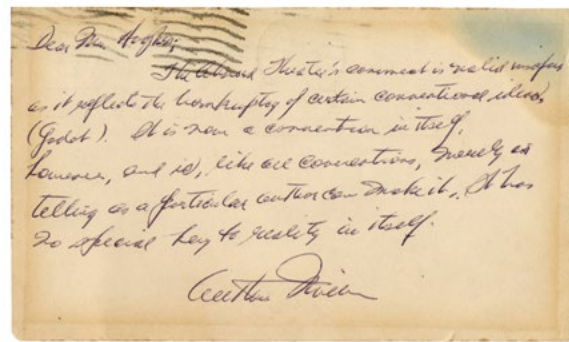 Dear Mr. Hughes,
The Absurd Theater's comment is valid insofar
as it reflects the bankruptcy of certain conventional ideas
(Godot). It is now a convention in itself,
however, and is, like all conventions, merely as
telling as a particular author can make it. It has
no special key to reality in itself.
Arthur Miller